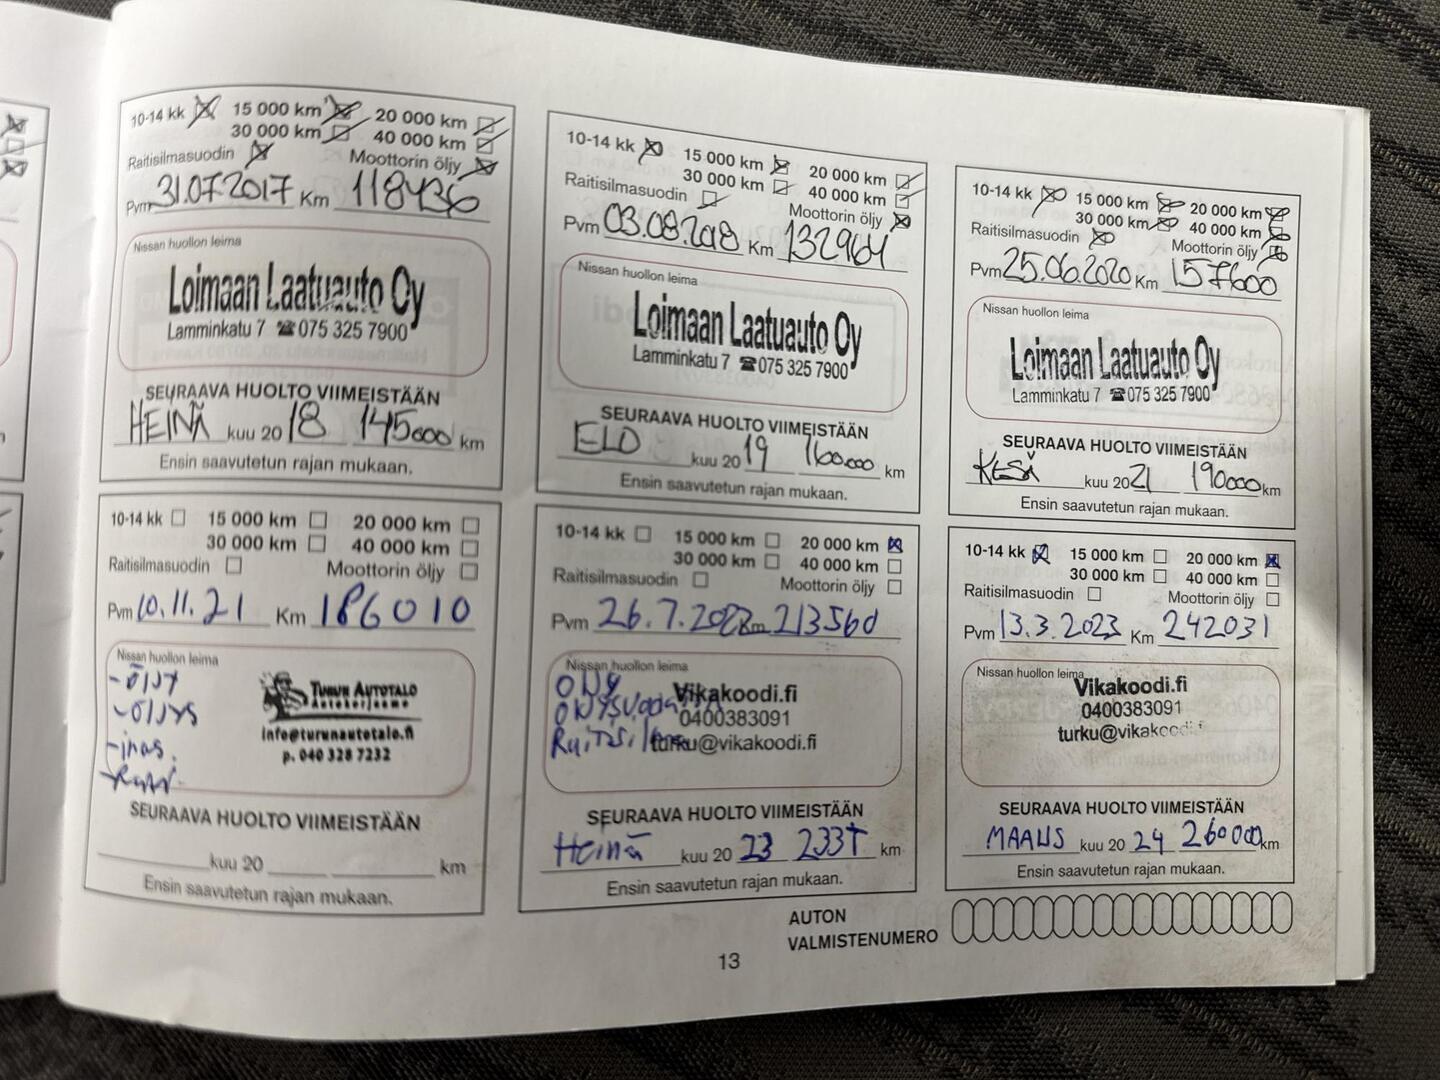 10-14 kk 15 000 km 20 000 km
30 000 km 40 000 km
Raitisilmasuodin Moottorin öljy
Pvm 31.07.2017 Km 118436
Nissan huollon leima
Loimaan Laatuauto Oy
Lamminkatu 7 ☎075 325 7900
SEURAAVA HUOLTO VIIMEISTÄÄN
HEINÄ kuu 2018 145000 km
Ensin saavutetun rajan mukaan.
10-14 kk 15 000 km 20 000 km
30 000 km 40 000 km
Raitisilmasuodin Moottorin öljy
Pvm 03.08.2018 Km 132964
Nissan huollon leima
Loimaan Laatuauto Oy
Lamminkatu 7 ☎075 325 7900
SEURAAVA HUOLTO VIIMEISTÄÄN
ELO kuu 2019 160000 km
Ensin saavutetun rajan mukaan.
10-14 kk 15 000 km 20 000 km
30 000 km 40 000 km
Raitisilmasuodin Moottorin öljy
Pvm 25.06.2020 Km 157600
Nissan huollon leima
Loimaan Laatuauto Oy
Lamminkatu 7 ☎075 325 7900
SEURAAVA HUOLTO VIIMEISTÄÄN
KESÄ kuu 2021 190000 km
Ensin saavutetun rajan mukaan.
10-14 kk 15 000 km 20 000 km
30 000 km 40 000 km
Raitisilmasuodin Moottorin öljy
Pvm 10.11.21 Km 186010
Nissan huollon leima
TURUN AUTOTALO
Autokorjaamo
info@turunautotalo.fi
p. 040 328 7232
SEURAAVA HUOLTO VIIMEISTÄÄN
kuu 20 km
Ensin saavutetun rajan mukaan.
10-14 kk 15 000 km 20 000 km
30 000 km 40 000 km
Raitisilmasuodin Moottorin öljy
Pvm 26.7.2022 Km 213560
Nissan huollon leima
Vikakoodi.fi
0400383091
turku@vikakoodi.fi
SEURAAVA HUOLTO VIIMEISTÄÄN
Heinä kuu 2023 233T km
Ensin saavutetun rajan mukaan.
10-14 kk 15 000 km 20 000 km
30 000 km 40 000 km
Raitisilmasuodin Moottorin öljy
Pvm 13.3.2023 Km 242031
Nissan huollon leima
Vikakoodi.fi
0400383091
turku@vikakoodi
SEURAAVA HUOLTO VIIMEISTÄÄN
MAALIS kuu 2024 260000 km
Ensin saavutetun rajan mukaan.
AUTON
VALMISTENUMERO
13